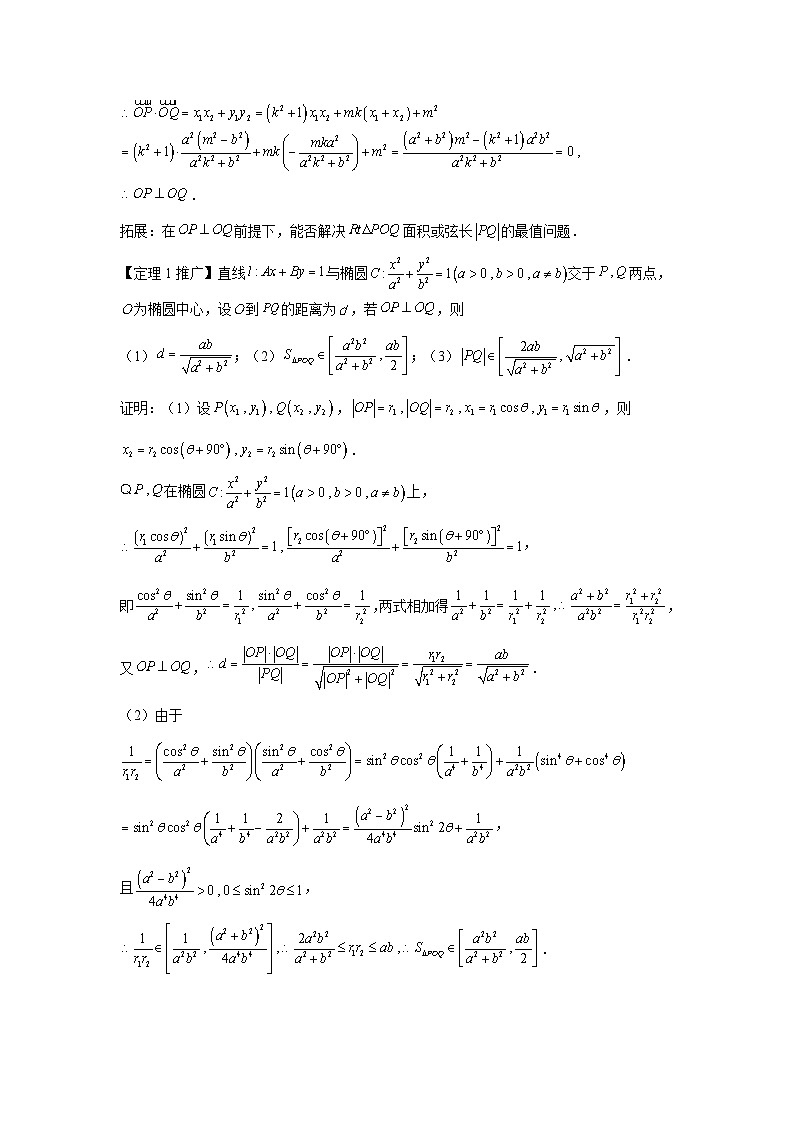 ∴ OP·OQ = x₁x₂ + y₁y₂ = (k² + 1)x₁x₂ + mk(x₁ + x₂) + m²
= (k² + 1)·a²(m² − b²)/(a²k² + b²) + mk(−mka²/(a²k² + b²)) + m² = ((a² + b²)m² − (k² + 1)a²b²)/(a²k² + b²) = 0，
∴ OP ⊥ OQ．
拓展：在OP ⊥ OQ前提下，能否解决Rt△POQ面积或弦长|PQ|的最值问题．
【定理1推广】直线l : Ax + By = 1与椭圆C : x²/a² + y²/b² = 1(a > 0 , b > 0 , a ≠ b)交于P , Q两点，
O为椭圆中心，设O到PQ的距离为d，若OP ⊥ OQ，则
（1）d = ab/√(a² + b²)；（2）S△POQ ∈ [a²b²/(a² + b²) , ab/2]；（3）|PQ| ∈ [2ab/√(a² + b²) , √(a² + b²)]．
证明：（1）设P(x₁ , y₁) , Q(x₂ , y₂)，|OP| = r₁ , |OQ| = r₂ , x₁ = r₁ cos θ , y₁ = r₁ sin θ，则
x₂ = r₂ cos(θ + 90°) , y₂ = r₂ sin(θ + 90°)．
Q P , Q在椭圆C : x²/a² + y²/b² = 1(a > 0 , b > 0 , a ≠ b)上，
∴ (r₁ cos θ)²/a² + (r₁ sin θ)²/b² = 1 , [r₂ cos(θ + 90°)]²/a² + [r₂ sin(θ + 90°)]²/b² = 1，
即cos² θ/a² + sin² θ/b² = 1/r₁² , sin² θ/a² + cos² θ/b² = 1/r₂²，两式相加得1/a² + 1/b² = 1/r₁² + 1/r₂² , ∴ (a² + b²)/(a²b²) = (r₁² + r₂²)/(r₁²r₂²)，
又OP ⊥ OQ，∴ d = |OP|·|OQ|/|PQ| = |OP|·|OQ|/√(|OP|² + |OQ|²) = r₁r₂/√(r₁² + r₂²) = ab/√(a² + b²)．
（2）由于
1/(r₁r₂) = (cos² θ/a² + sin² θ/b²)(sin² θ/a² + cos² θ/b²) = sin² θ cos² θ(1/a⁴ + 1/b⁴) + 1/(a²b²)(sin⁴ θ + cos⁴ θ)
= sin² θ cos² θ(1/a⁴ + 1/b⁴ − 2/(a²b²)) + 1/(a²b²) = (a² − b²)²/(4a⁴b⁴) sin² 2θ + 1/(a²b²)，
且(a² − b²)²/(4a⁴b⁴) > 0 , 0 ≤ sin² 2θ ≤ 1，
∴ 1/(r₁r₂) ∈ [1/(a²b²) , (a² + b²)²/(4a⁴b⁴)] , ∴ 2a²b²/(a² + b²) ≤ r₁r₂ ≤ ab , ∴ S△POQ ∈ [a²b²/(a² + b²) , ab/2]．